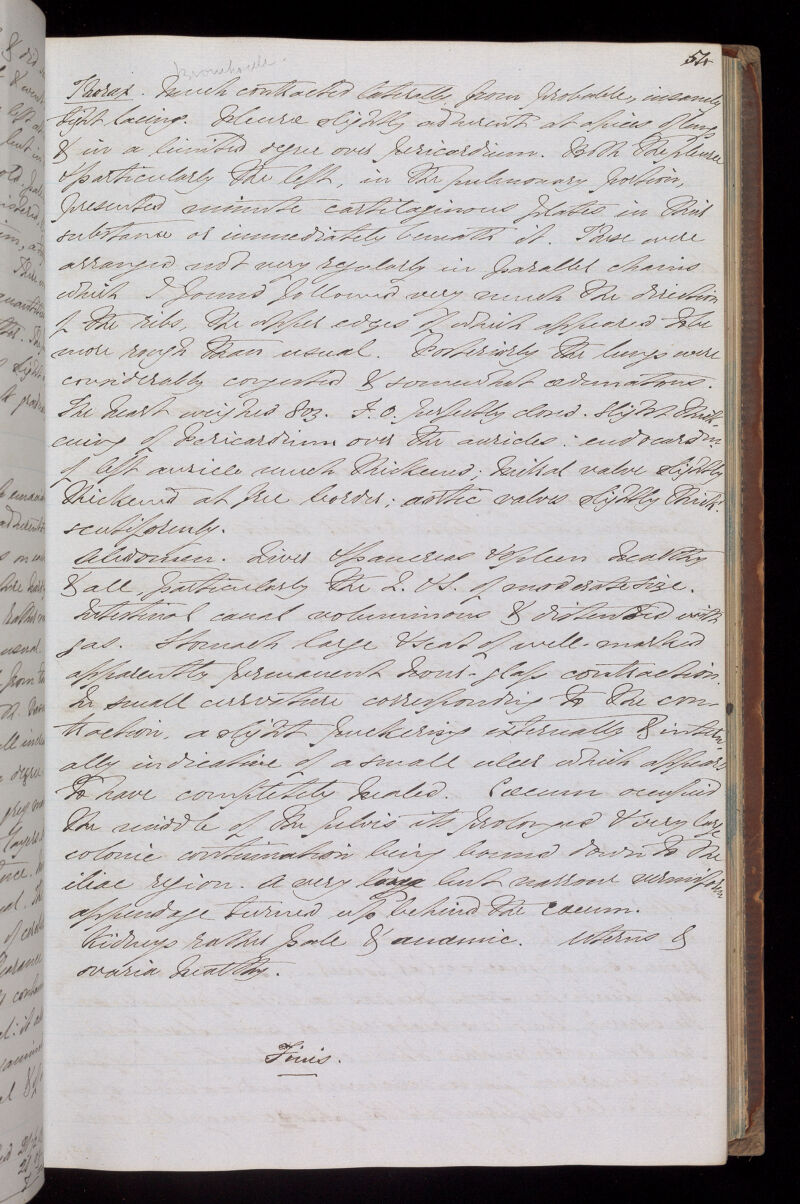 54
Thorax. Much contracted laterally from probably, insanely
tight lacing. Pleurae slightly adherent at apices of lung
& in a limited degree over pericardium. Both the pleurae
& particularly the left, in the pulmonary portion,
presented minute cartilaginous plates in their
substance or immediately beneath it. These were
arranged not very regularly in parallel chains
which I found followed very much the direction
of the ribs, the upper edges of which appeared to be
more rough than usual. Posteriorly the lungs were
considerably congested & somewhat oedematous.
The heart weighed 8 oz. F.O. perfectly closed. Slight thick-
ening of Pericardium over the auricles: endocardm.
of left auricle much thickened: mitral valve slightly
thickened at free border; aortic valves slightly thick.
Abdomen. Liver & pancreas & spleen healthy
& all particularly the L. & S. of moderate size.
Intestinal canal voluminous & distended with
gas. Stomach large & seat of well-marked
apparently permanent hour-glass contraction.
In small curvature corresponding to the con-
traction, a slight puckering externally & intern-
ally indicative of a small ulcer which appears
to have completely healed. Caecum occupied
the middle of the pelvis its prolonged & very large
colonic continuation being bound down to the
iliac region. A very long but narrow vermiform
appendage turned up behind the caecum.
Kidneys rather pale & anaemic. Uterus &
ovaria healthy.
Finis.